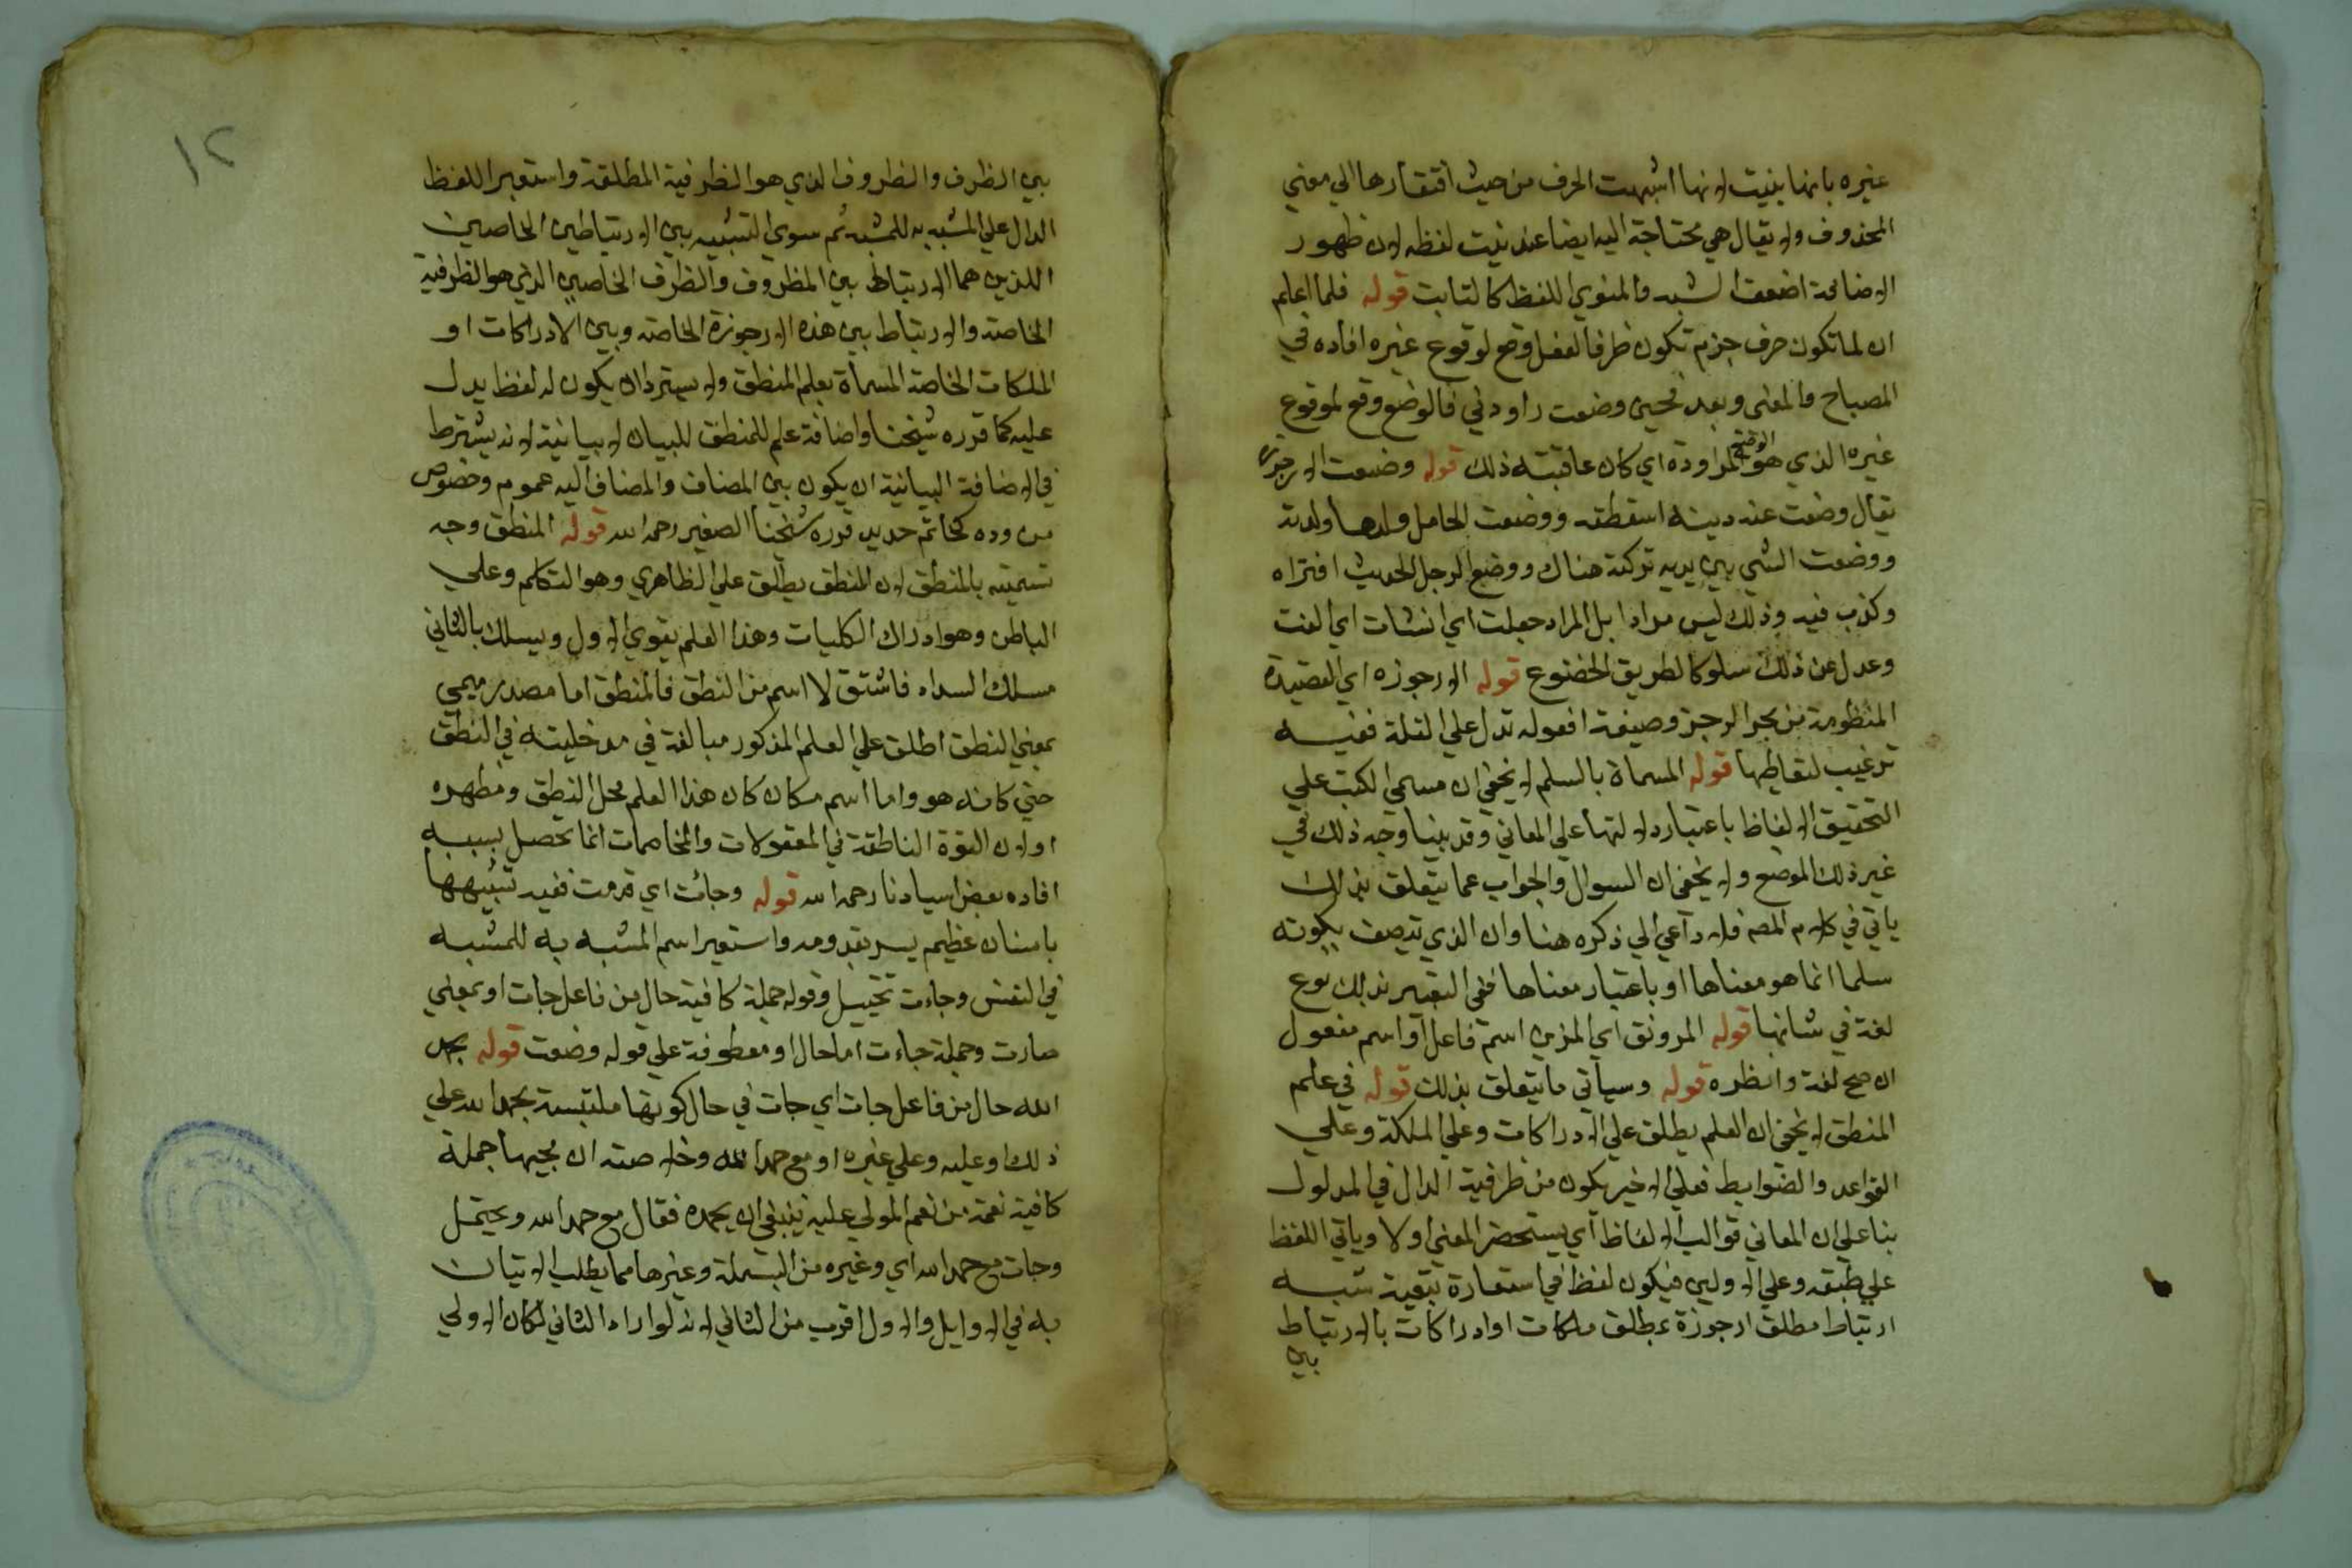 غيره بانها بنيت لانها اشبهت الحرف من حيث افتقارها الي معني
المحذوف ولا يقال هي محتاجة اليه ايضا عند نيت لفظه لان ظهور
الاضافة اضعف الشبه والمنوي اللفظ كالثابت قوله فلما اعلم
ان لما تكون حرف جزم تكون ظرفا لفعل وقع لوقوع غيره افاده في
المصباح والمعني وبعد فحين وضعت راودني فالوضع وقع لوقوع
غيره الذي هو المراودة اي كان عاقبته ذلك قوله وضعت الارجوزة
يقال وضعت عنه دينه اسقطته ووضعت الحامل ولدها ولدته
ووضعت الشي بين يديه تركته هناك ووضع الرجل الحديث افتراه
وكذب فيه وذلك ليس مرادا بل المراد جعلت اي انشات اي الفت
وعدل عن ذلك سلوكا لطريق الخضوع قوله الارجوزه اي القصيدة
المنظومة من بحر الرجز وصيغة افعوله تدل علي القلة ففيه
ترغيب لتعاطيها قوله المسماة بالسلم لا يخفي ان مسمي الكتب علي
التحقيق الالفاظ باعتبار دلالتها علي المعاني وقد بينا وجه ذلك في
غير ذلك الموضع ولا يخفي ان السوال والجواب عما يتعلق بذلك
ياتي في كلام المص فلا داعي الي ذكره هنا وان الذي تتصف بكونه
سلما انما هو معناها او باعتبار معناها ففي التعبير بذلك نوع
لغة في شانها قوله المرونق اي المزين اسم فاعل او اسم مفعول
ان صح لغة وانظره قوله وسياتي ما يتعلق بذلك قوله في علم
المنطق لا يخفي ان العلم يطلق علي الادراكات وعلي الملكة وعلي
القواعد والضوابط فعلي الاخير يكون من ظرفية الدال في المدلول
بنا علي ان المعاني قوالب الالفاظ اي يستحضر المعني اولا وياتي اللفظ
علي طبقه وعلي الاولين فيكون لفظ في استعارة تبعية شبه
ارتباط مطلق ارجوزة بمطلق ملكات او ادراكات بالارتباط
بين
١٢
بين الظرف والمظروف الذي هو الظرفية المطلقة واستعير اللفظ
الدال علي المشبه به للمشبه ثم سوي التشبيه بين الارتباطين الخاصين
اللذين هما الارتباط بين المظروف والظرف الخاصين الذي هو الظرفية
الخاصة والارتباط بين هذه الارجوزة الخاصة وبين الادراكات او
الملكات الخاصة المسماة بعلم المنطق ولا يشترط ان يكون له لفظ يدل
عليه كما قرره شيخنا واضافة علم للمنطق للبيان لا بيانية لانه يشترط
في الاضافة البيانية ان يكون بين المضاف والمضاف اليه عموم وخصوص
من وجه كخاتم حديد قرره شيخنا الصغير رحمه الله قوله المنطق وجه
تسميته بالمنطق لان المنطق يطلق علي الظاهري وهو التكلم وعلي
الباطن وهو ادراك الكليات وهذا العلم يقوي الاول ويسلك بالثاني
مسلك السداد فاشتق لا اسم من النطق فالمنطق اما مصدر ميمي
بمعني النطق اطلق علي العلم المذكور مبالغة في مدخليته في النطق
حتي كانه هو واما اسم مكان كان هذا العلم محل النطق ومظهره
اولان القوة الناطقة في المعقولات والمخاصمات انما تحصل بسببه
افاده بعض اسيادنا رحمه الله قوله وجائت اي قدمت ففيه تشبيهها
بانسان عظيم يسر بقدومه واستعير اسم المشبه به للمشبه
في النفس وجاءت تخييل وقوله جملة كافية حال من فاعل جات او بمعني
صارت وجملة جاءت اما حال او معطوفة علي قوله وضعت قوله بحمد
الله حال من فاعل جات اي جات في حال كونها ملتبسة بحمد الله علي
ذلك او عليه وعلي غيره او مع حمد الله وخلاصته ان مجيها جملة
كافية نعمة من نعم المولي عليه ينبغي ان يحمده فقال مع حمد الله ويحتمل
وجات مع حمد الله اي وغيره من البسملة وغيرها مما يطلب الاتيان
به في الاوايل والاول اقرب من الثاني لانه لو اراد الثاني لكان الاولي